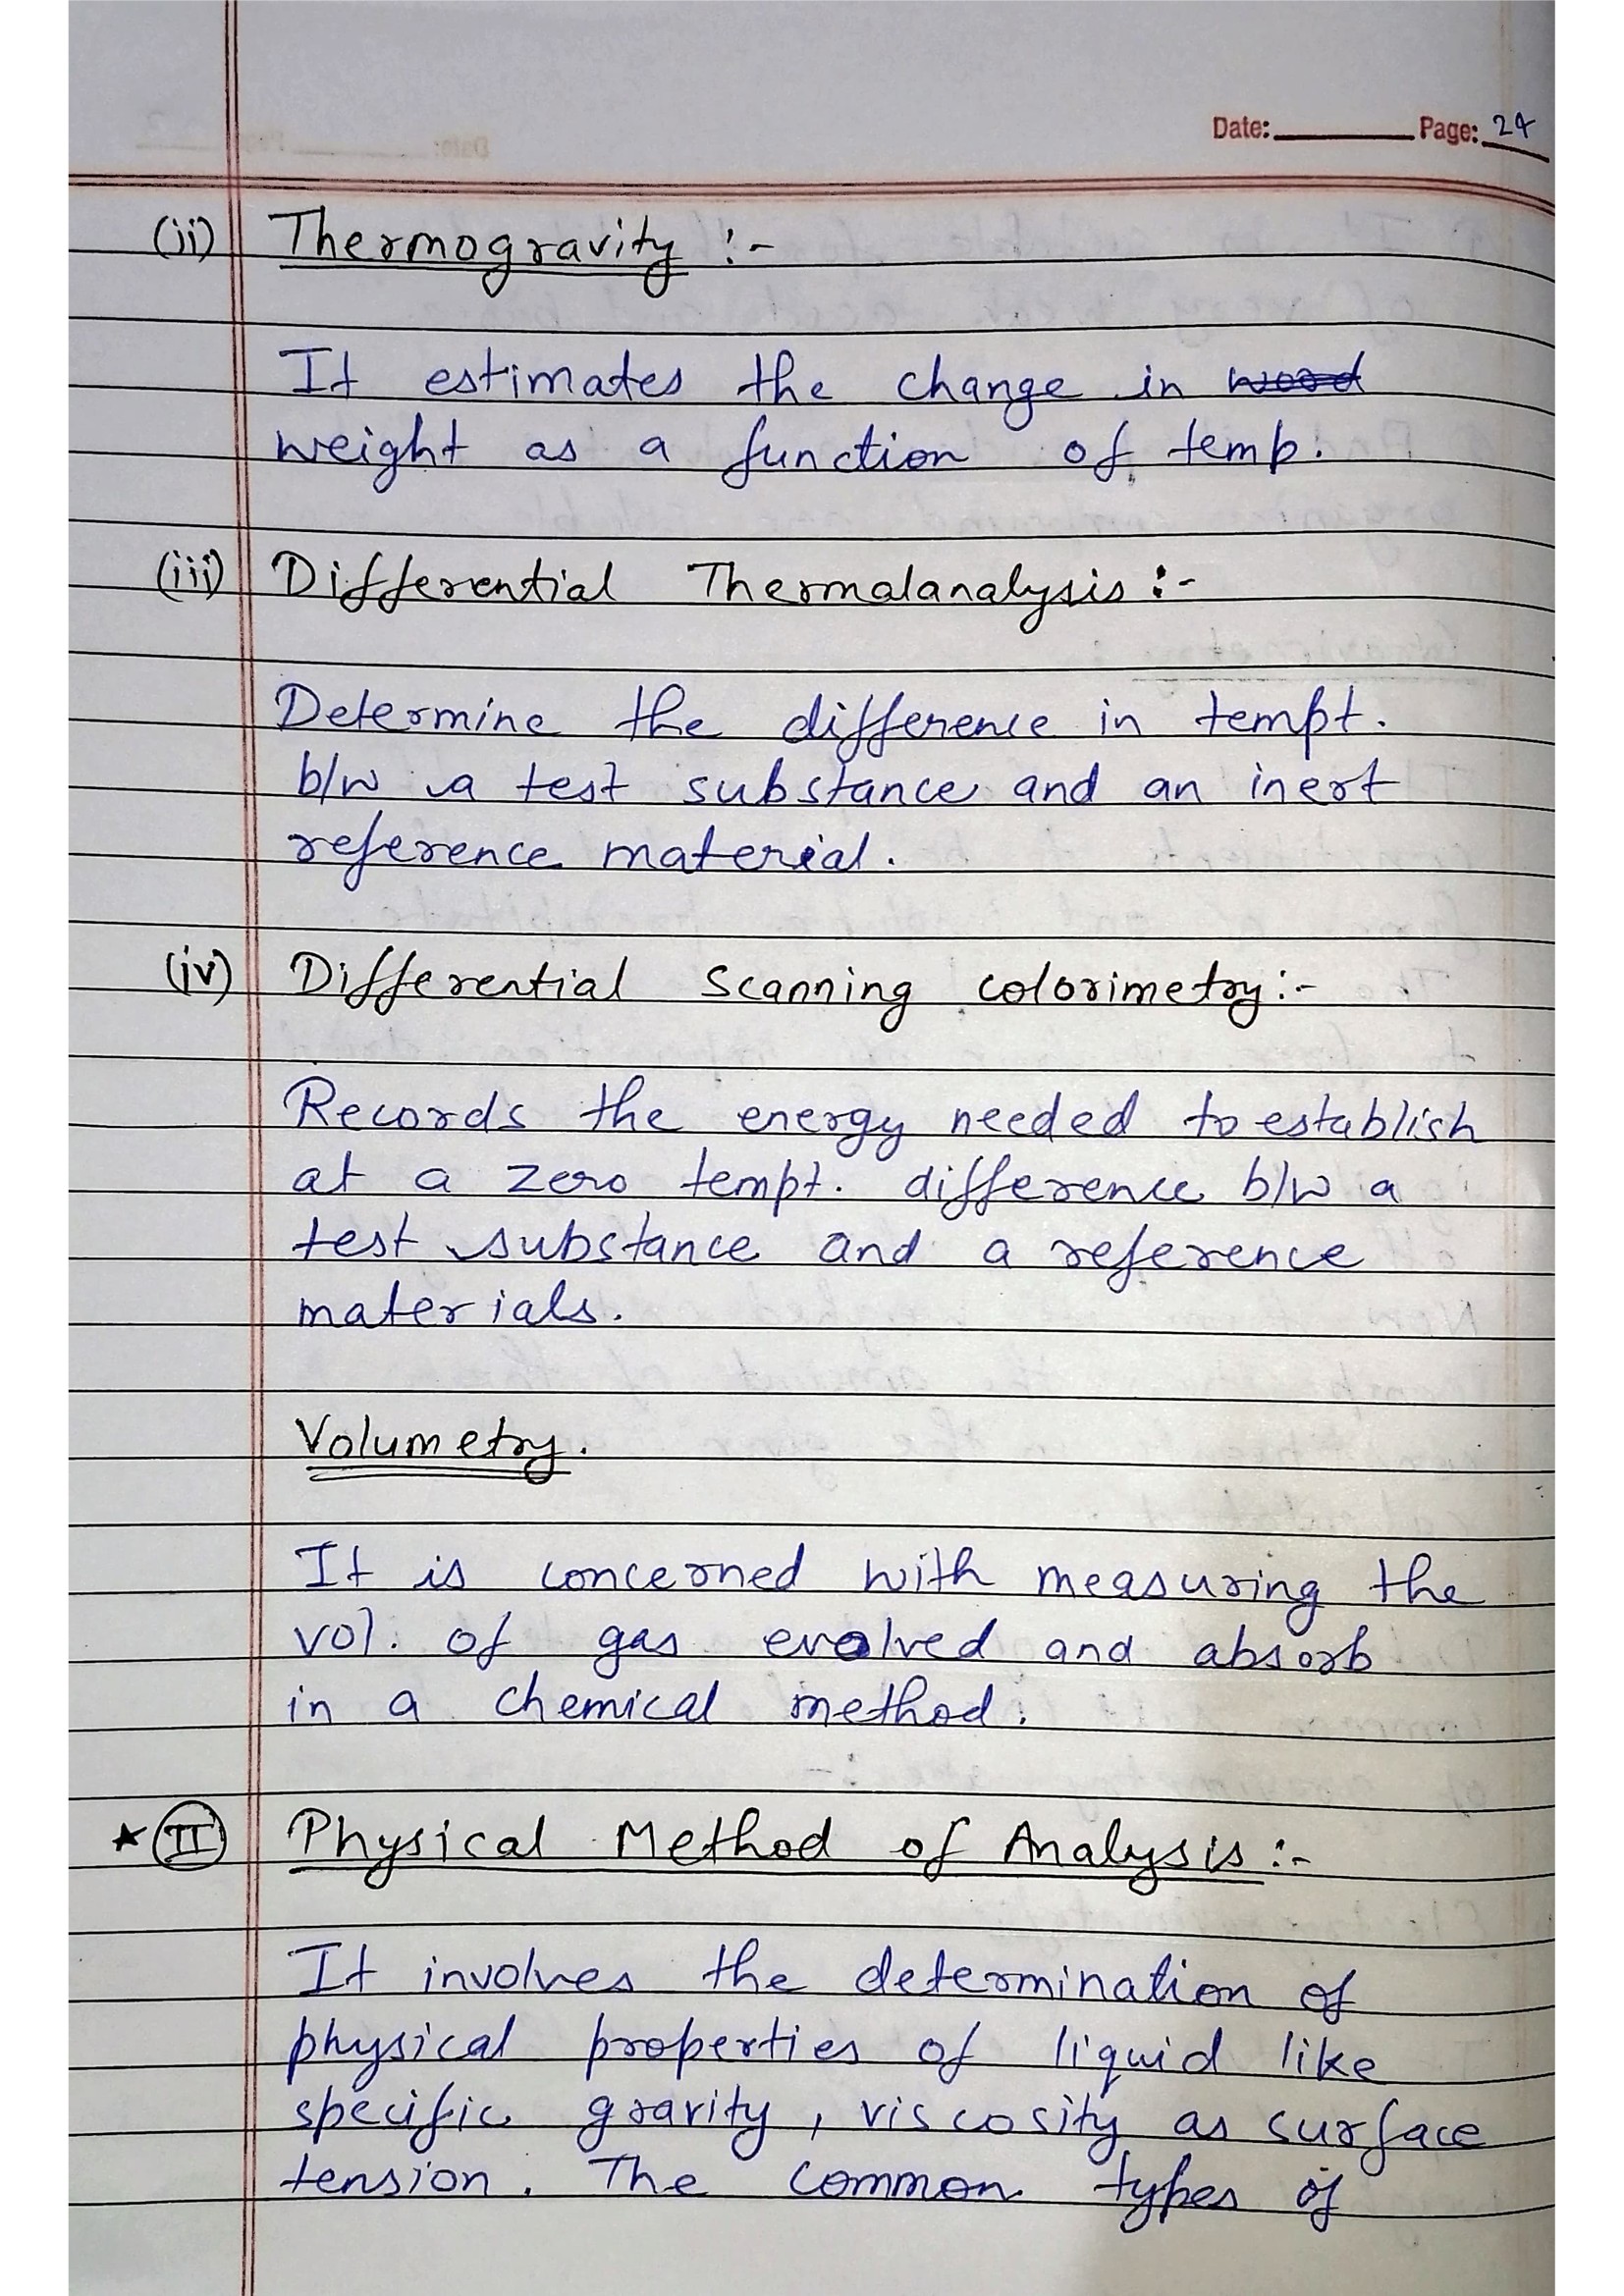 Date: Page: 24
(ii) Thermogravity :-
It estimates the change in
weight as a function of temp.
(iii) Differential Thermalanalysis :-
Determine the difference in tempt.
b/w a test substance and an inert
reference material.
(iv) Differential Scanning colorimetry :-
Records the energy needed to establish
at a zero tempt. difference b/w a
test substance and a reference
materials.
Volumetry.
It is concerned with measuring the
vol. of gas evolved and absorb
in a chemical method.
★ II Physical Method of Analysis :-
It involves the determination of
physical properties of liquid like
specific gravity, viscosity as surface
tension. The common types of